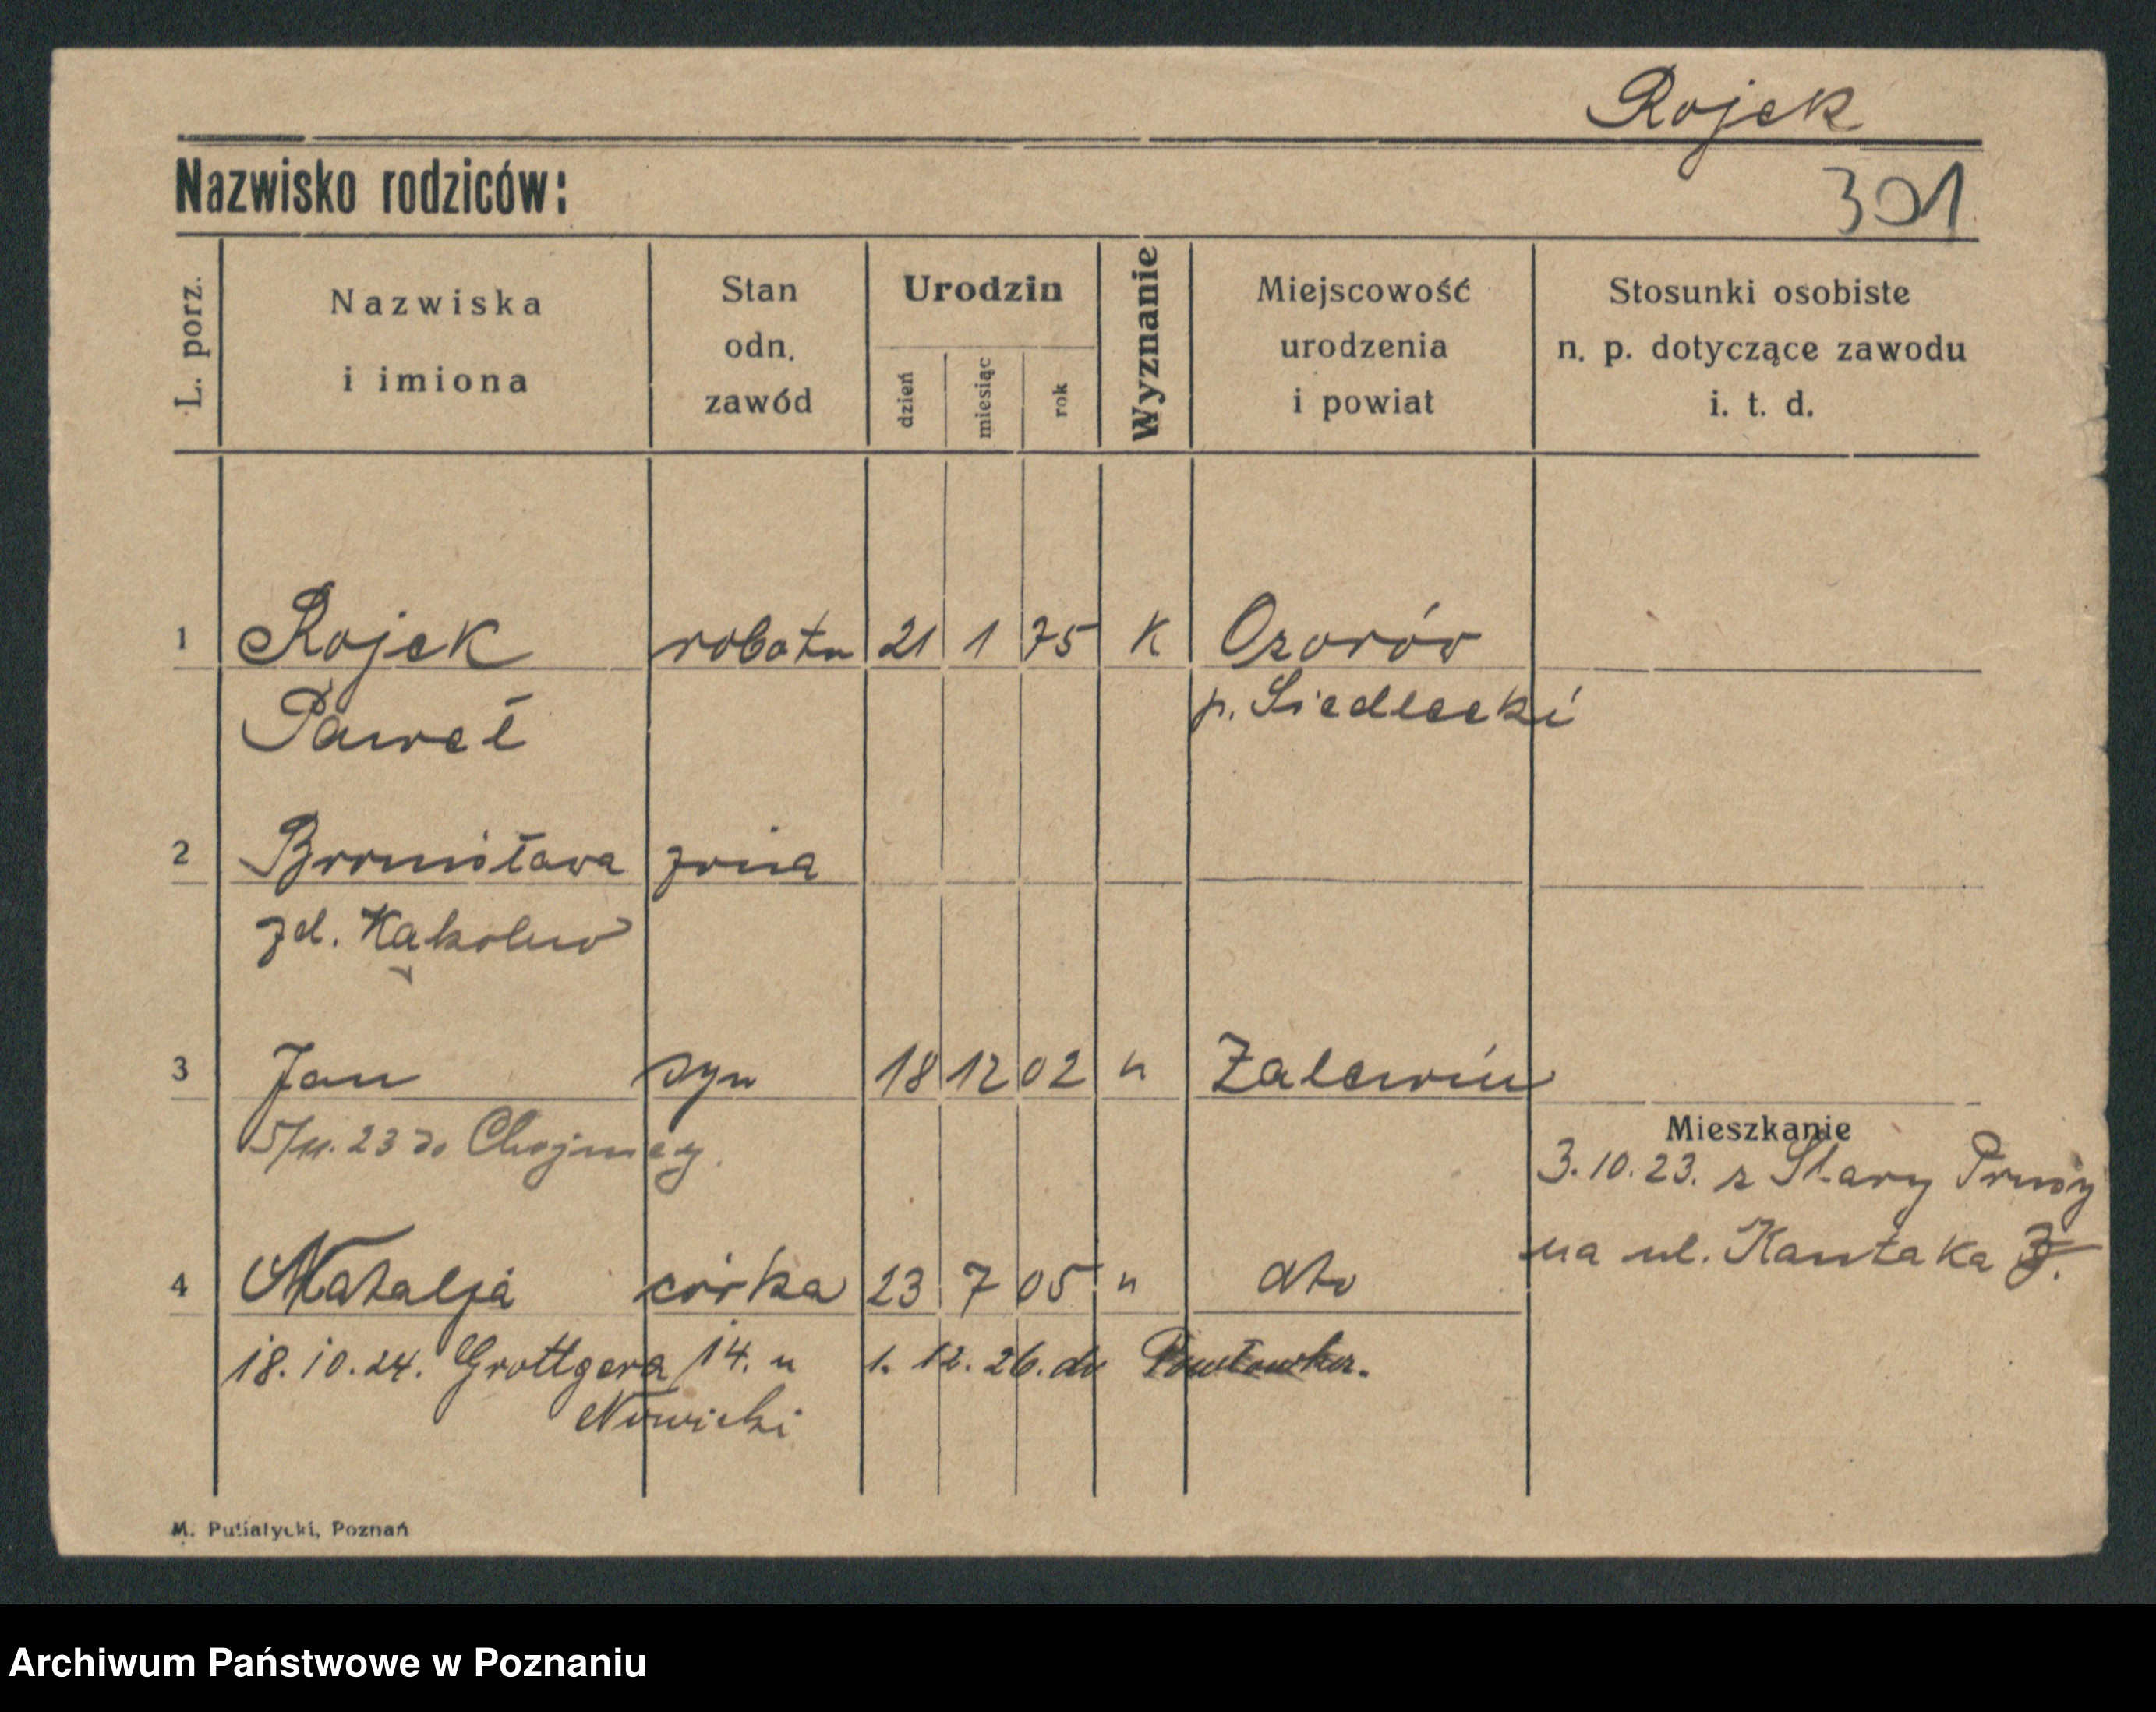 Rojek
Nazwisko rodziców:
301
L. porz.
Nazwiska
i imiona
Stan
odn.
zawód
Urodzin
dzień
miesiąc
rok
Wyznanie
Miejscowość
urodzenia
i powiat
Stosunki osobiste
n. p. dotyczące zawodu
i. t. d.
1 Rojek robotn 21 1 75 K Ozorów
Paweł p. Siedlecki
2 Bronisława żona
zd. Kąkolew
3 Jan syn 18 12 02 " Zalewiu
5/11. 23 do Chojnicy.
Mieszkanie
3. 10. 23. z Stary Prusy
na ul. Kantaka
4 Natalja córka 23 7 05 " dto
18. 10. 24. Grottgera 14. u 1. 12. 26. do
Nowicki
M. Putiatycki, Poznań
Archiwum Państwowe w Poznaniu